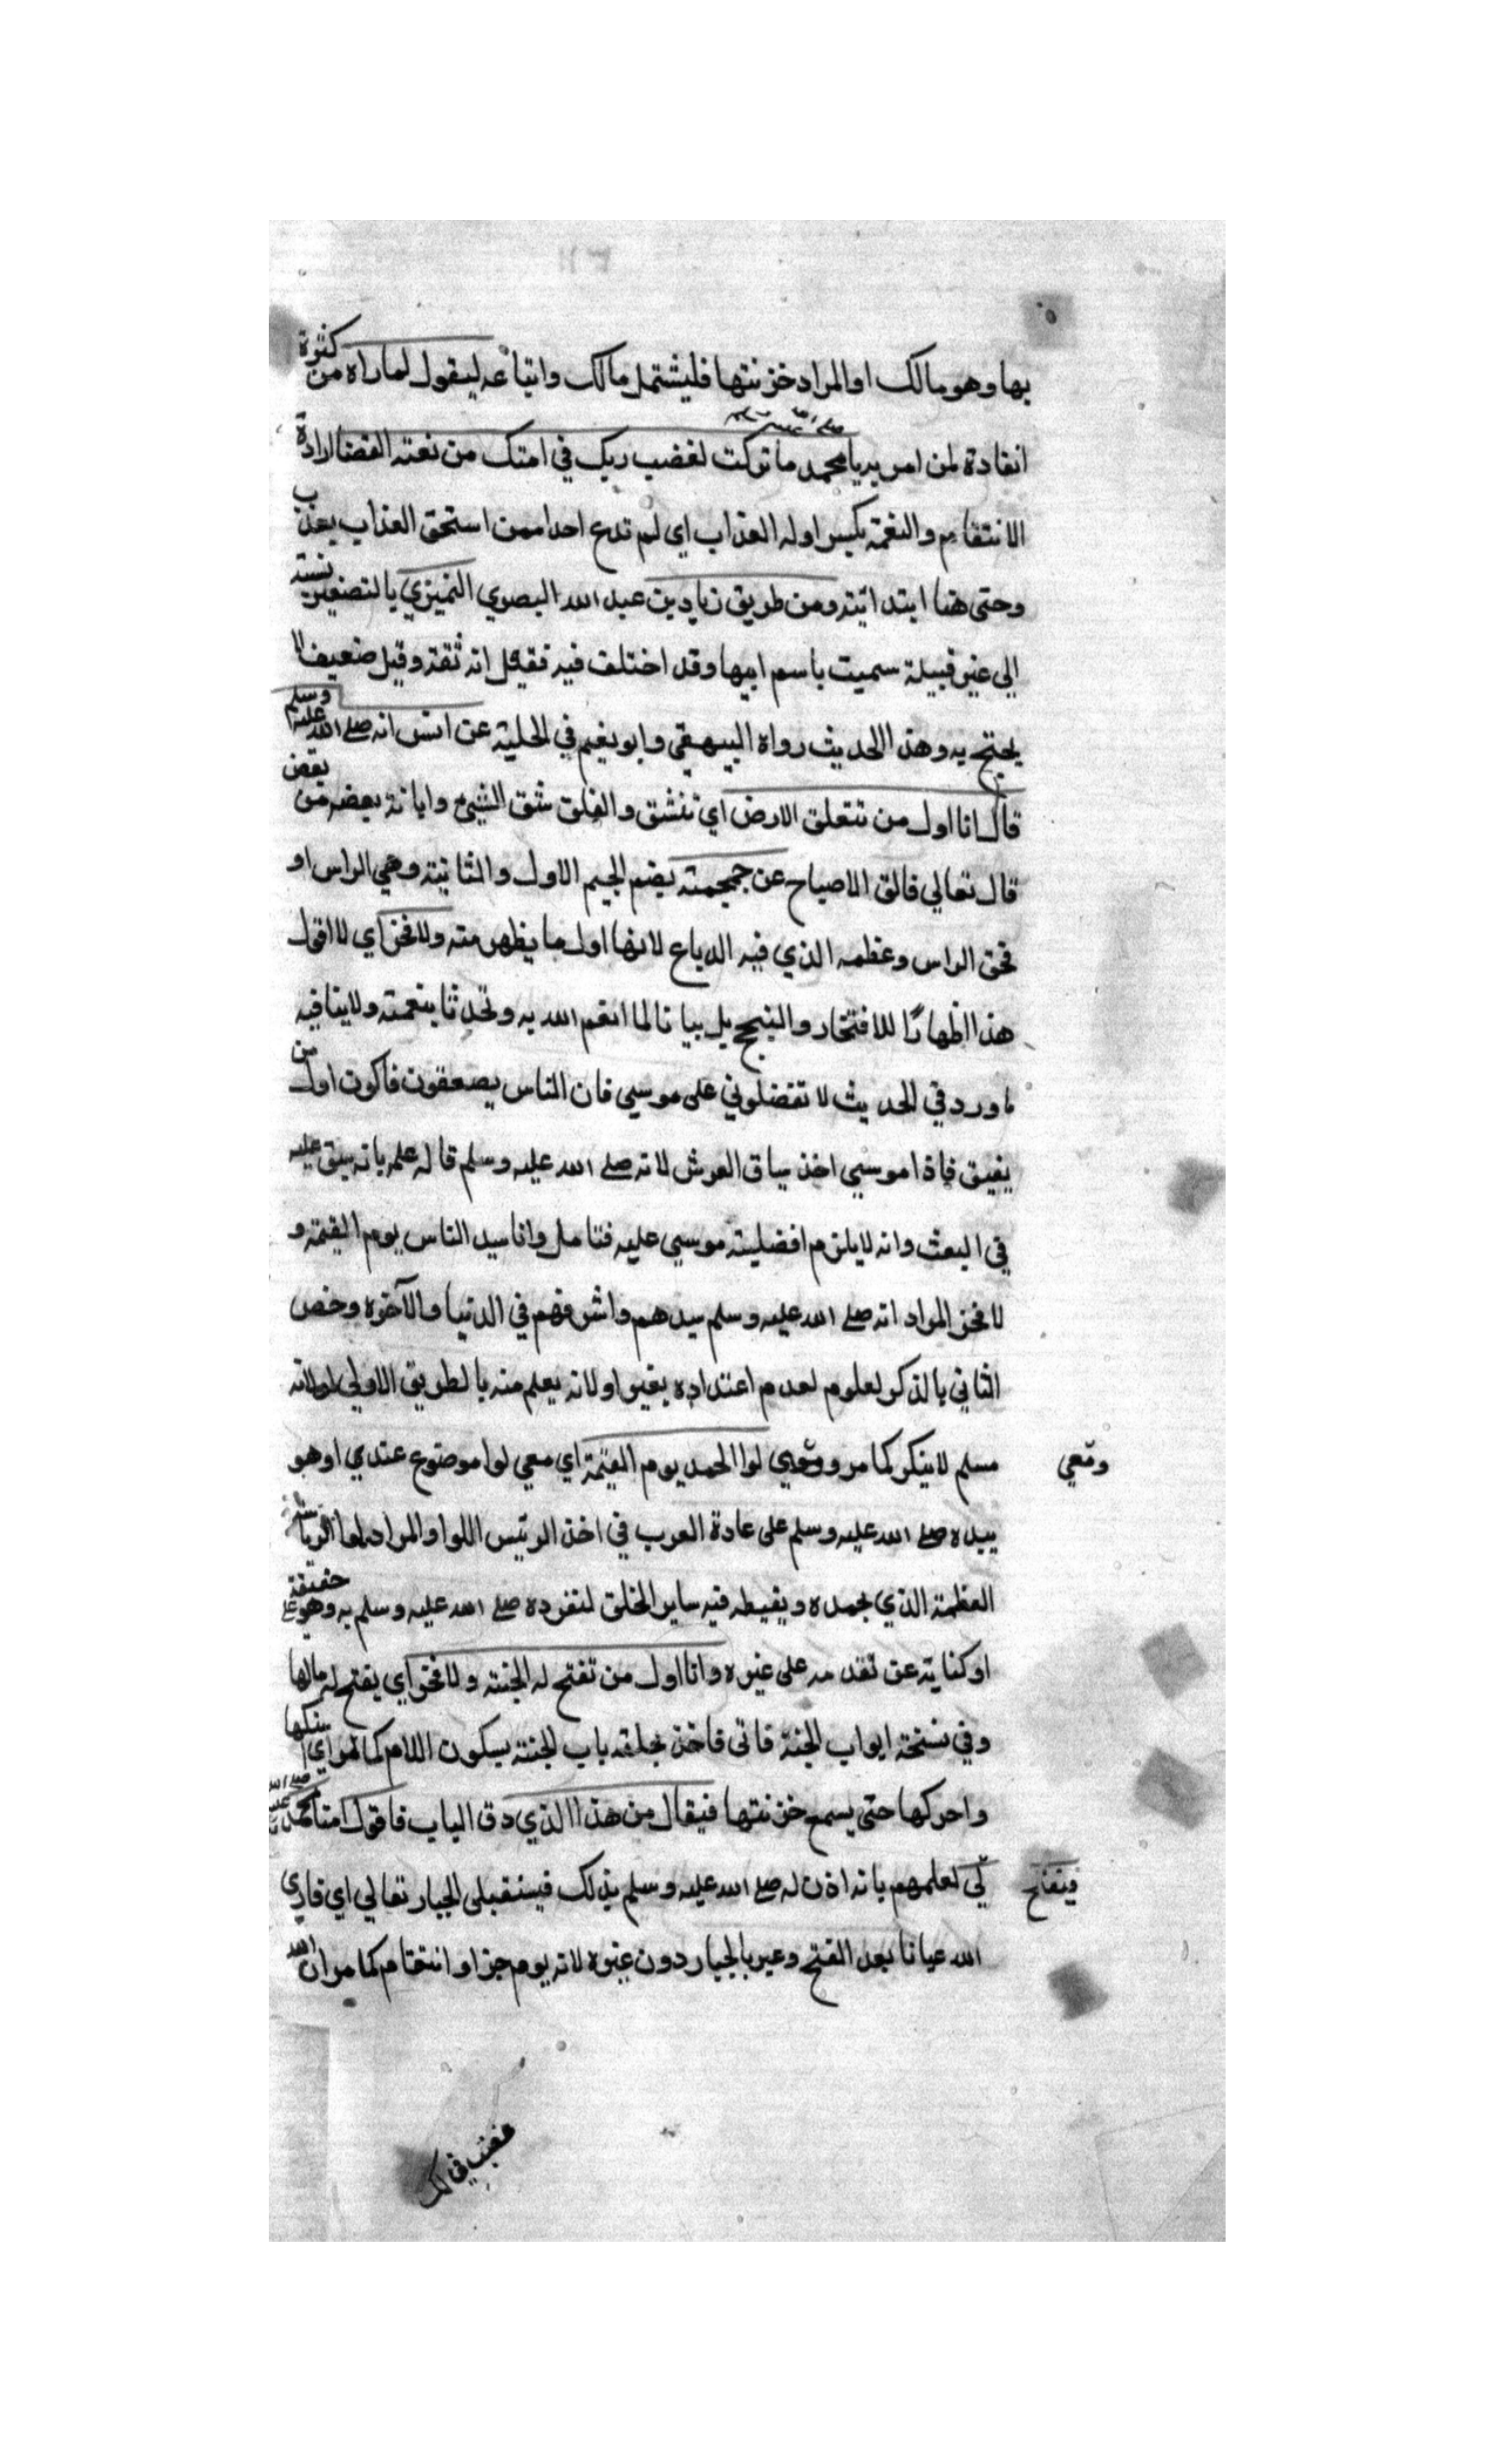 بها وهو مالك او المراد خزنتها فليشتمل مالك واتباعه ليقول لما راه من كثرة
انقاذه لمن امر به يا محمد صلى الله عليه وسلم ما تركت لغضب ربك في امتك من نقمة الغضب ارادة
الانتقام والنقمة بكسر اوله العذاب اي لم تدع احدا ممن استحق العذاب يعذب
وحتى هنا ابتدائية ومن طريق زياد بن عبد الله البصري النميري بالتصغير نسبته
الى نمير قبيلة سميت باسم ابيها وقد اختلف فيه فقيل انه ثقة وقيل ضعيف لا
يحتج به وهذا الحديث رواه البيهقي وابو نعيم في الحلية عن انس انه صلى الله عليه وسلم
قال انا اول من تنفلق الارض اي تنشق والفلق شق الشيئ وابانة بعضه من بعض
قال تعالي فالق الاصباح عن جمجمته بضم الجيم الاول والثانية وهي الراس او
قحف الراس وعظمه الذي فيه الدماغ لانها اول ما يظهر منه ولا فخر اي لا اقول
هذا اظهارًا للافتخار والتبجح بل بيانا لما انعم الله به وتحدثا بنعمته ولا ينافيه
ما ورد في الحديث لا تفضلوني على موسي فان الناس يصعقون فاكون اول من
يفيق فاذا موسي اخذ بساق العرش لانه صلى الله عليه وسلم قاله علمه بانه سبق عليه
في البعث وانه لا يلزم افضلية موسي عليه فتامل وانا سيد الناس يوم القيمة و
لا فخر المراد انه صلى الله عليه وسلم سيدهم واشرفهم في الدنيا والآخرة وخص
الثاني بالذكر لعلوم لعدم اعتداده بغيره او لانه يعلم منه بالطريق الاولي او لانه
مسلم لا ينكر كما مر ومعي لوا الحمد يوم القيمة اي معي لوا موضوع عندي او هو
ومعي
بيده صلى الله عليه وسلم على عادة العرب في اخذ الرئيس اللوا والمراد لها الرياسة
العظمة الذي يحمده ويغبطه فيه ساير الخلق لتفرده صلى الله عليه وسلم به وهو على حقيقته
او كناية عن تقدمه على غيره وانا اول من تفتح له الجنة ولا فخر اي يفتح له بابها
وفي نسخة ابواب الجنة فاتى فاخذ بحلقة باب الجنة بسكون اللام كما مر اي امسكها
واحركها حتى يسمع خزنتها فيقال من هذا الذي دق الباب فاقول انا محمد صلى الله عليه
فيفتح
لي لعلمهم بانه اذن له صلى الله عليه وسلم بذلك فيستقبلني الجبار تعالي اي فاري
الله عيانا بعد الفتح وعبر بالجبار دون غيره لانه يوم جزا وانتقام كما مر ان الله